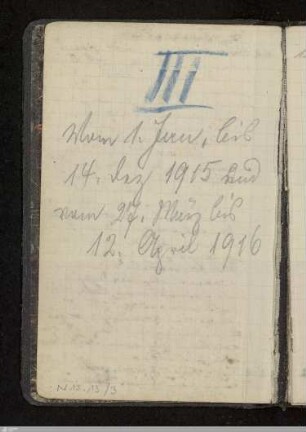 III
Vom 1. Jan. bis
14. Dez 1915 und
vom 27. März bis
12. April 1916
N 12.13/3